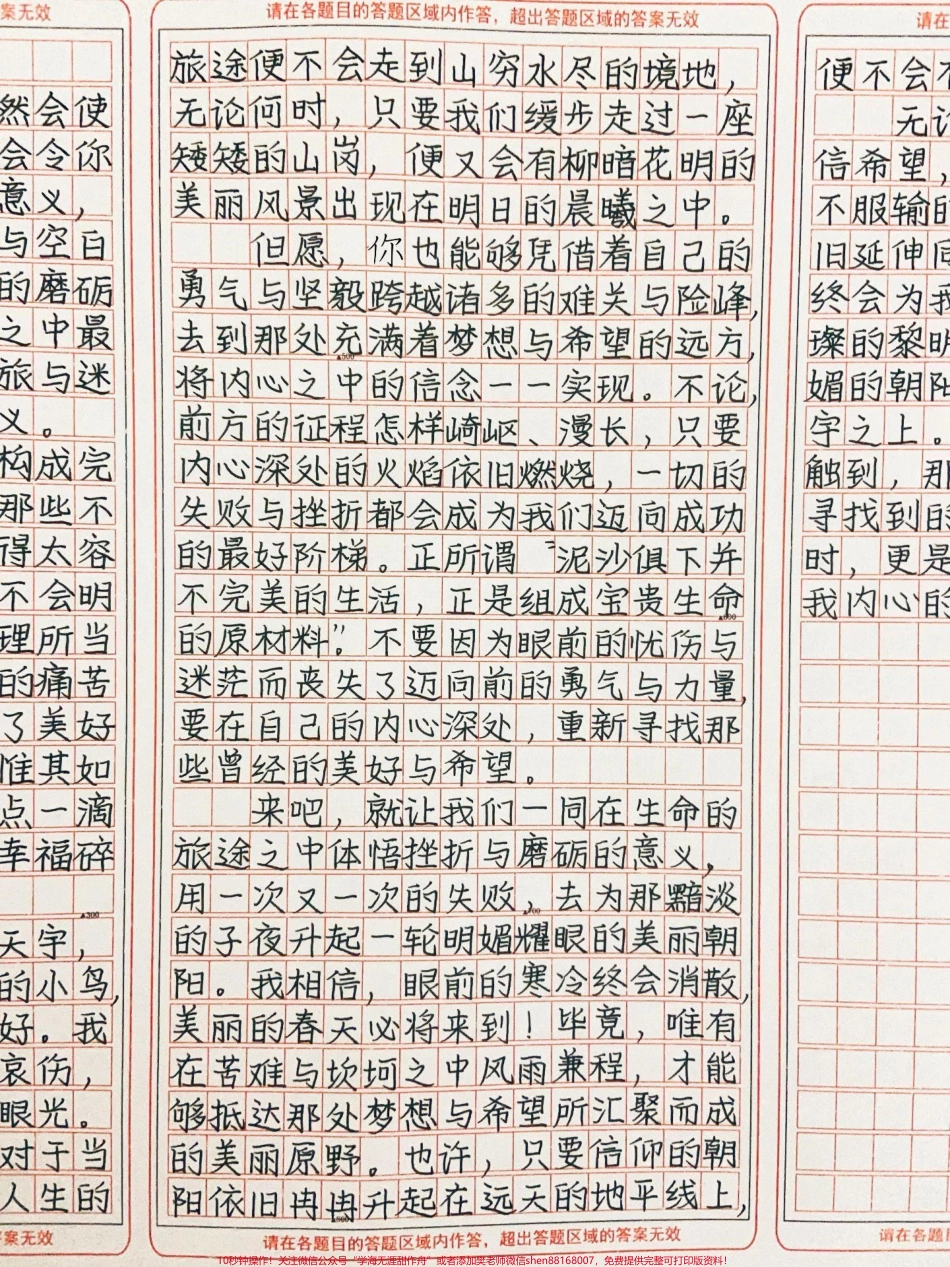 案无效
然会使
会令你
意义，
与空白
的磨砺
之中最
旅与迷
义。
构成完
那些不
得太容
不会明
理所当
的痛苦
了美好
惟其如
点一滴
幸福碎
▲300
天宇，
的小鸟，
好。我
哀伤，
眼光。
对于当
人生的
案无效
请在各题目的答题区域内作答，超出答题区域的答案无效
旅途便不会走到山穷水尽的境地，
无论何时，只要我们缓步走过一座
矮矮的山岗，便又会有柳暗花明的
美丽风景出现在明日的晨曦之中。
但愿，你也能够凭借着自己的
勇气与坚毅跨越诸多的难关与险峰，
去到那处充满着梦想与希望的远方，
▲500
将内心之中的信念一一实现。不论，
前方的征程怎样崎岖、漫长，只要
内心深处的火焰依旧燃烧，一切的
失败与挫折都会成为我们迈向成功
的最好阶梯。正所谓“泥沙俱下并
不完美的生活，正是组成宝贵生命
▲600
的原材料”。不要因为眼前的忧伤与
迷茫而丧失了迈向前的勇气与力量，
要在自己的内心深处，重新寻找那
些曾经的美好与希望。
来吧，就让我们一同在生命的
旅途之中体悟挫折与磨砺的意义，
用一次又一次的失败，去为那黯淡
▲700
的子夜升起一轮明媚耀眼的美丽朝
阳。我相信，眼前的寒冷终会消散，
美丽的春天必将来到！毕竟，唯有
在苦难与坎坷之中风雨兼程，才能
够抵达那处梦想与希望所汇聚而成
的美丽原野。也许，只要信仰的朝
阳依旧冉冉升起在远天的地平线上，
▲800
请在各题目的答题区域内作答，超出答题区域的答案无效
请在
便不会
无论
信希望，
不服输的
旧延伸向
终会为我
璨的黎明
媚的朝阳
宇之上。
触到，那
寻找到的
时，更是
我内心的
请在各题目
10秒钟操作！关注微信公众号“学海无涯甜作舟”或者添加奠老师微信shen88168007，免费提供完整可打印版资料！